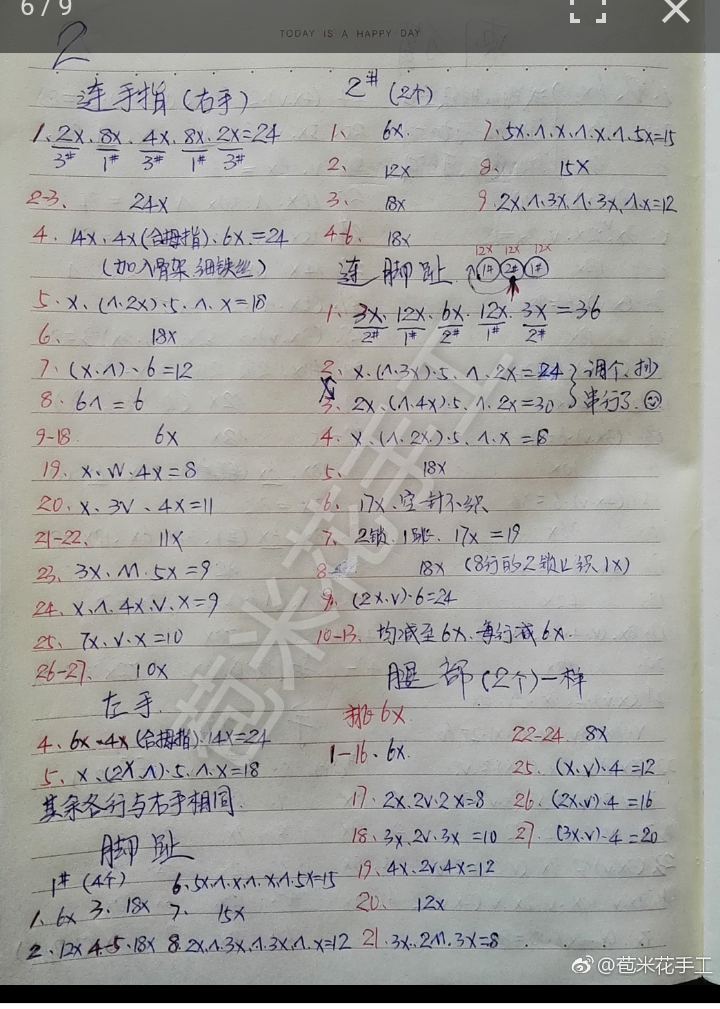 6 / 9
TODAY IS A HAPPY DAY
2
连手指(右手)
1、2X、8X、4X、8X、2X=24
3# 1# 3# 1# 3#
2-3、 24X
4、14X、4X(合拇指)、6X、=24
(加入骨架细铁丝)
5、X、(Λ、2X)·5、Λ、X=18
6、 18X
7、(X、Λ)、6=12
8、6Λ=6
9-18 6X
19、X、W、4X=8
20、X、3V、4X=11
21-22、 11X
23、3X、M、5X=9
24、X、Λ、4X、V、X=9
25、7X、V、X=10
26-27、 10X
左手
4、6X、4X(合拇指)、14X=24
5、X、(2X、Λ)·5、Λ、X=18
其余各行与右手相同
脚趾
1#(4个)
1、6X
2、12X
3、18X
4-5、18X
6、5X、Λ、X、Λ、X、Λ、5X=15
7、 15X
8、2X、Λ、3X、Λ、3X、Λ、X=12
2#(2个)
1、 6X
2、 12X
3、 18X
4-6、 18X
7、5X、Λ、X、Λ、X、Λ、5X=15
8、 15X
9、2X、Λ、3X、Λ、3X、Λ、X=12
连脚趾
12X 12X 12X
1# 2# 1#
1、3X、12X、6X、12X、3X=36
2# 1# 2# 1# 2#
2、X、(Λ、3X)·5、Λ、2X=24
3、2X、(Λ、4X)·5、Λ、2X=30
调个、抄
串行了
4、X、(Λ、2X)·5、Λ、X=18
5、 18X
6、17X、空1针不织
7、2锁、1跳、17X=19
8 18X (8行的2锁上织1X)
9、(2X、V)·6=24
10-13、均减至6X、每行减6X、
腿部(2个)一样
挑6X
1-16、6X、
17、2X、2V、2X=8
18、3X、2V、3X=10
19、4X、2V、4X=12
20、 12X
21、3X、2M、3X=8
22-24 8X
25、(X、V)·4=12
26、(2X、V)·4=16
27、(3X、V)·4=20
苞米花手工
@苞米花手工